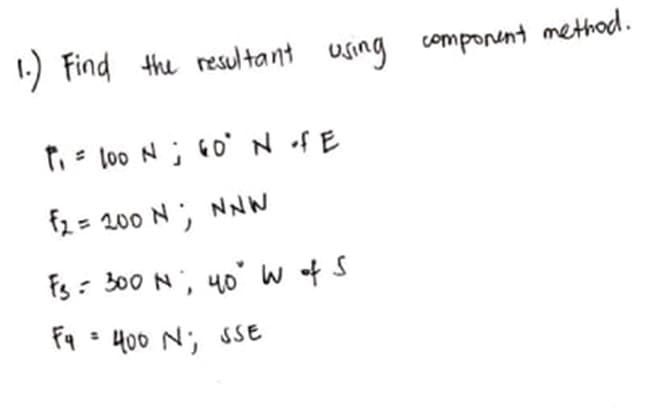 1.) Find the resultant using component method.
F₁ = 100 N ; 60° N of E
F₂ = 200 N ; NNW
F₃ = 300 N ; 40° W of S
F₄ = 400 N ; SSE